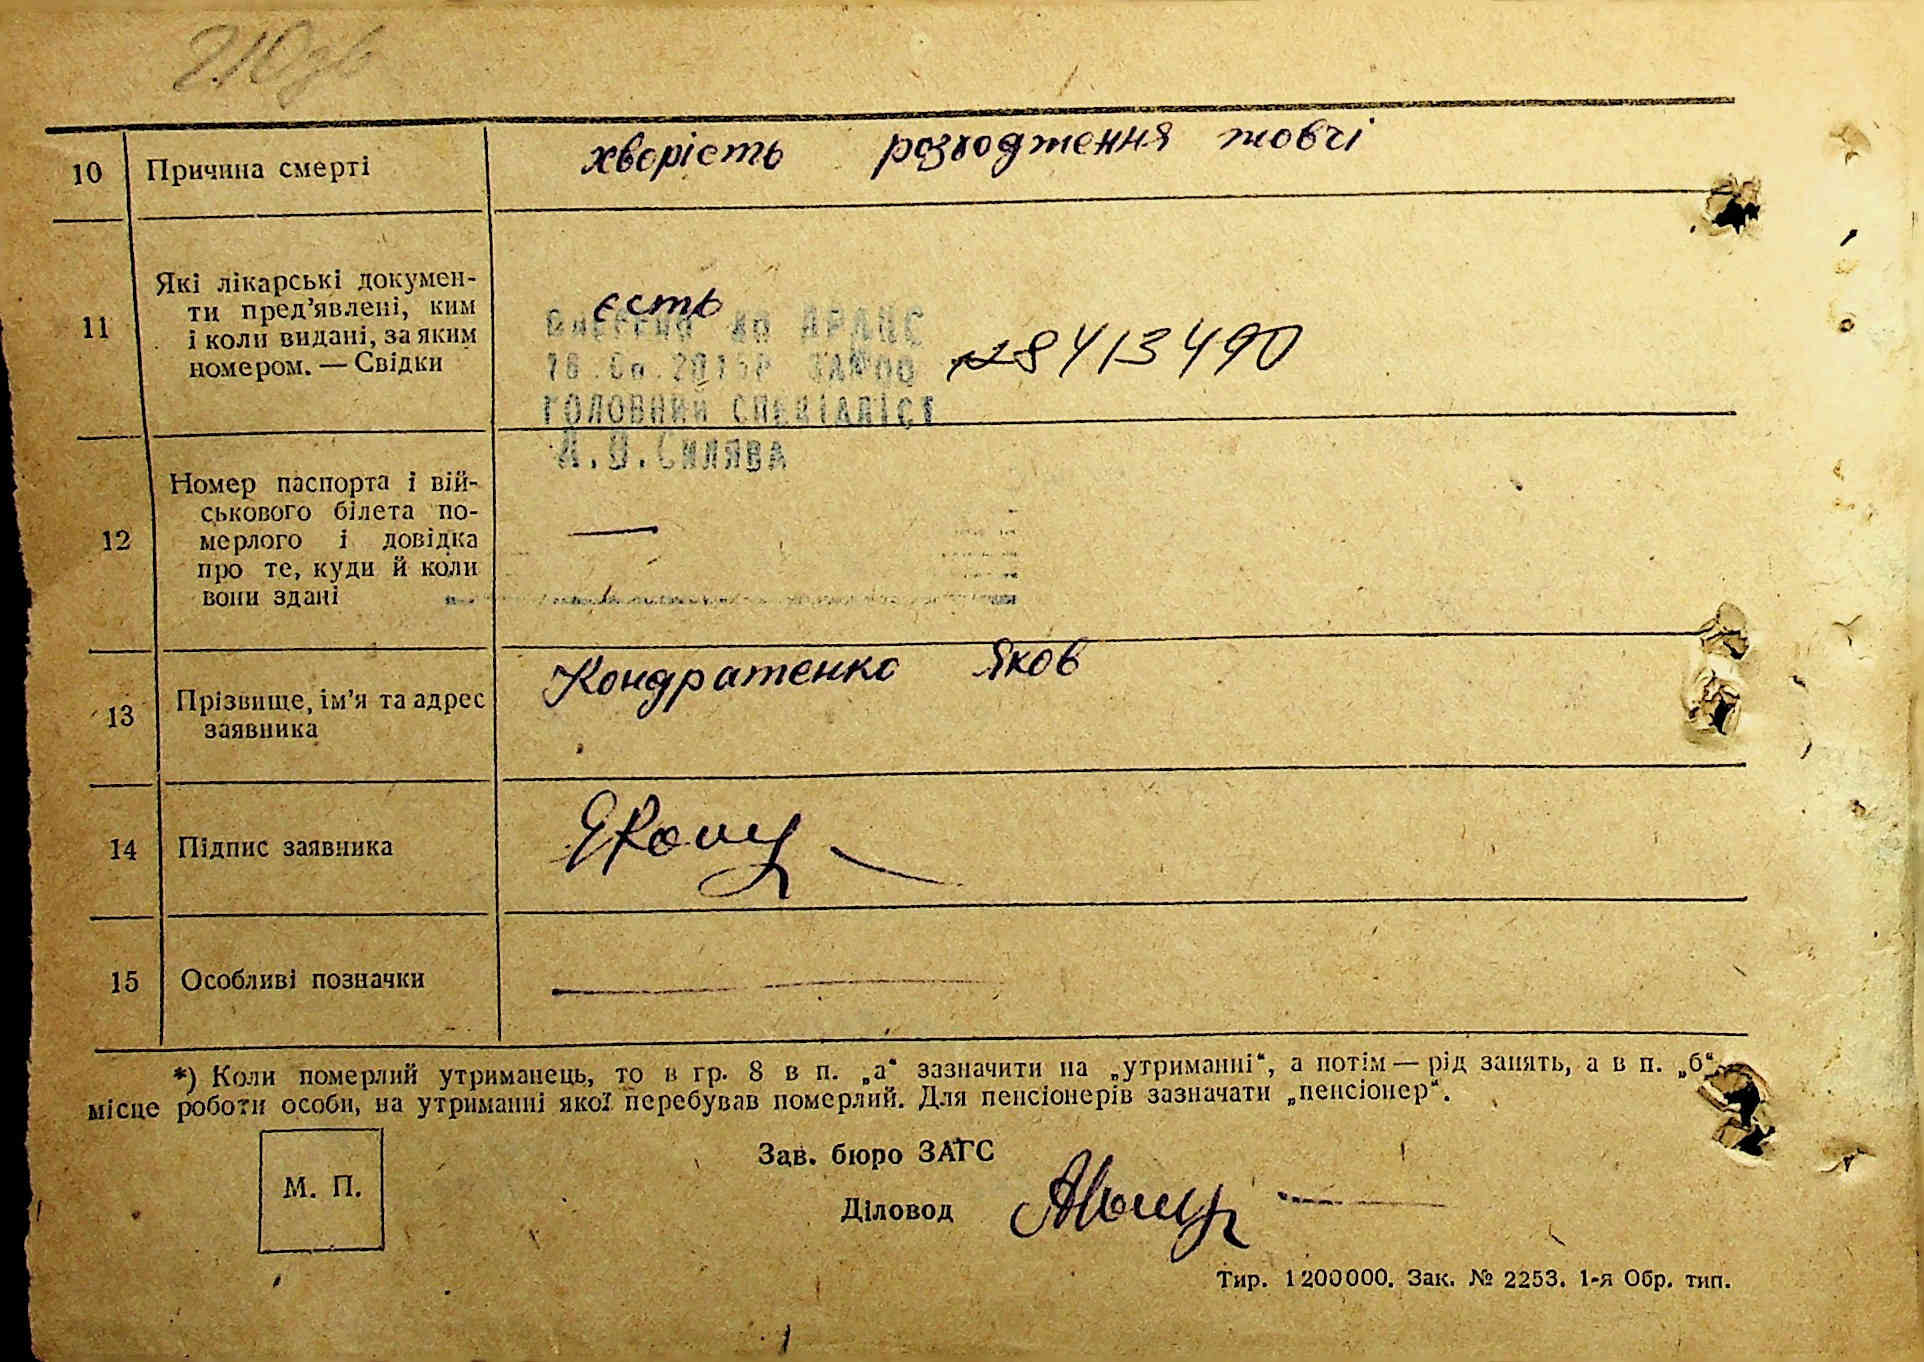 210зв
10 Причина смерті хворість розходження жовчі
11 Які лікарські докумен-
ти пред'явлені, ким
і коли видані, за яким
номером. — Свідки
єсть
Внесено до ДРАЦС
ЗА №00 №8413490
ГОЛОВНИЙ СПЕЦІАЛІСТ
Силява
12 Номер паспорта і вій-
ськового білета по-
мерлого і довідка
про те, куди й коли
вони здані
—
13 Прізвище, ім'я та адрес
заявника
Кондратенко Яков
14 Підпис заявника
15 Особливі позначки —
*) Коли померлий утриманець, то в гр. 8 в п. „а“ зазначити на „утриманні“, а потім — рід занять, а в п. „б“
місце роботи особи, на утриманні якої перебував померлий. Для пенсіонерів зазначати „пенсіонер“.
Зав. бюро ЗАГС
М. П.
Діловод
Тир. 1200000. Зак. № 2253. 1-я Обр. тип.